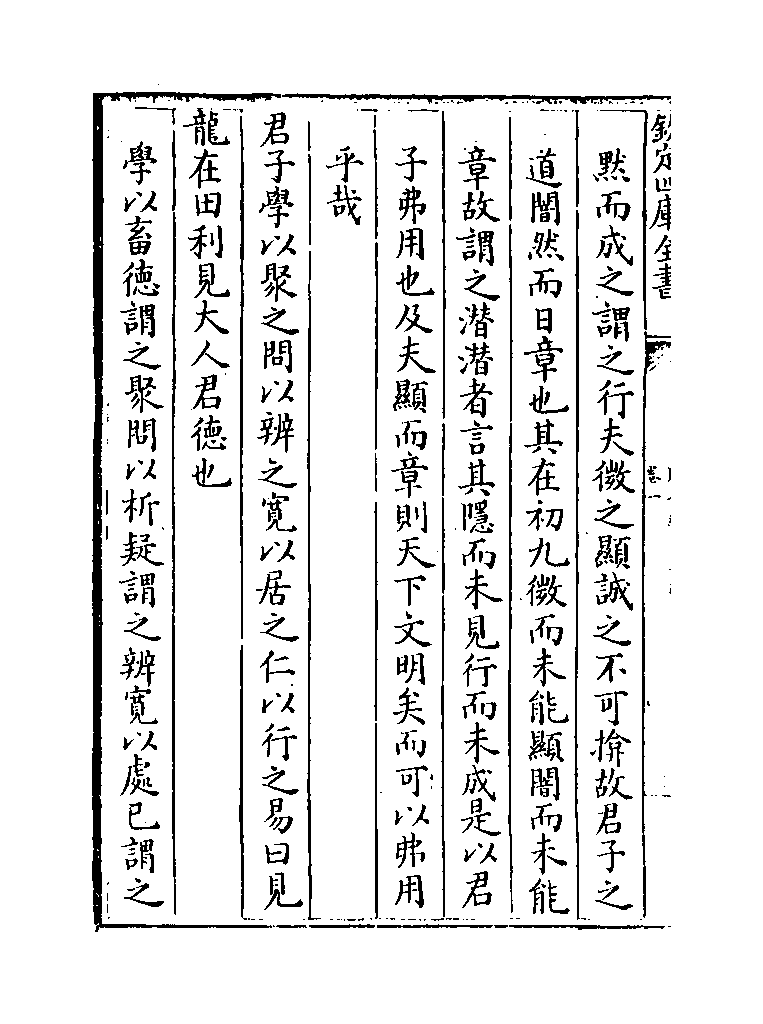 欽定四庫全書
卷一
黙而成之謂之行夫微之顯誠之不可揜故君子之
道闇然而日章也其在初九微而未能顯闇而未能
章故謂之潜潜者言其隱而未見行而未成是以君
子弗用也及夫顯而章則天下文明矣而可以弗用
乎哉
君子學以聚之問以辨之寛以居之仁以行之易曰見
龍在田利見大人君德也
學以畜德謂之聚問以析疑謂之辨寛以處已謂之